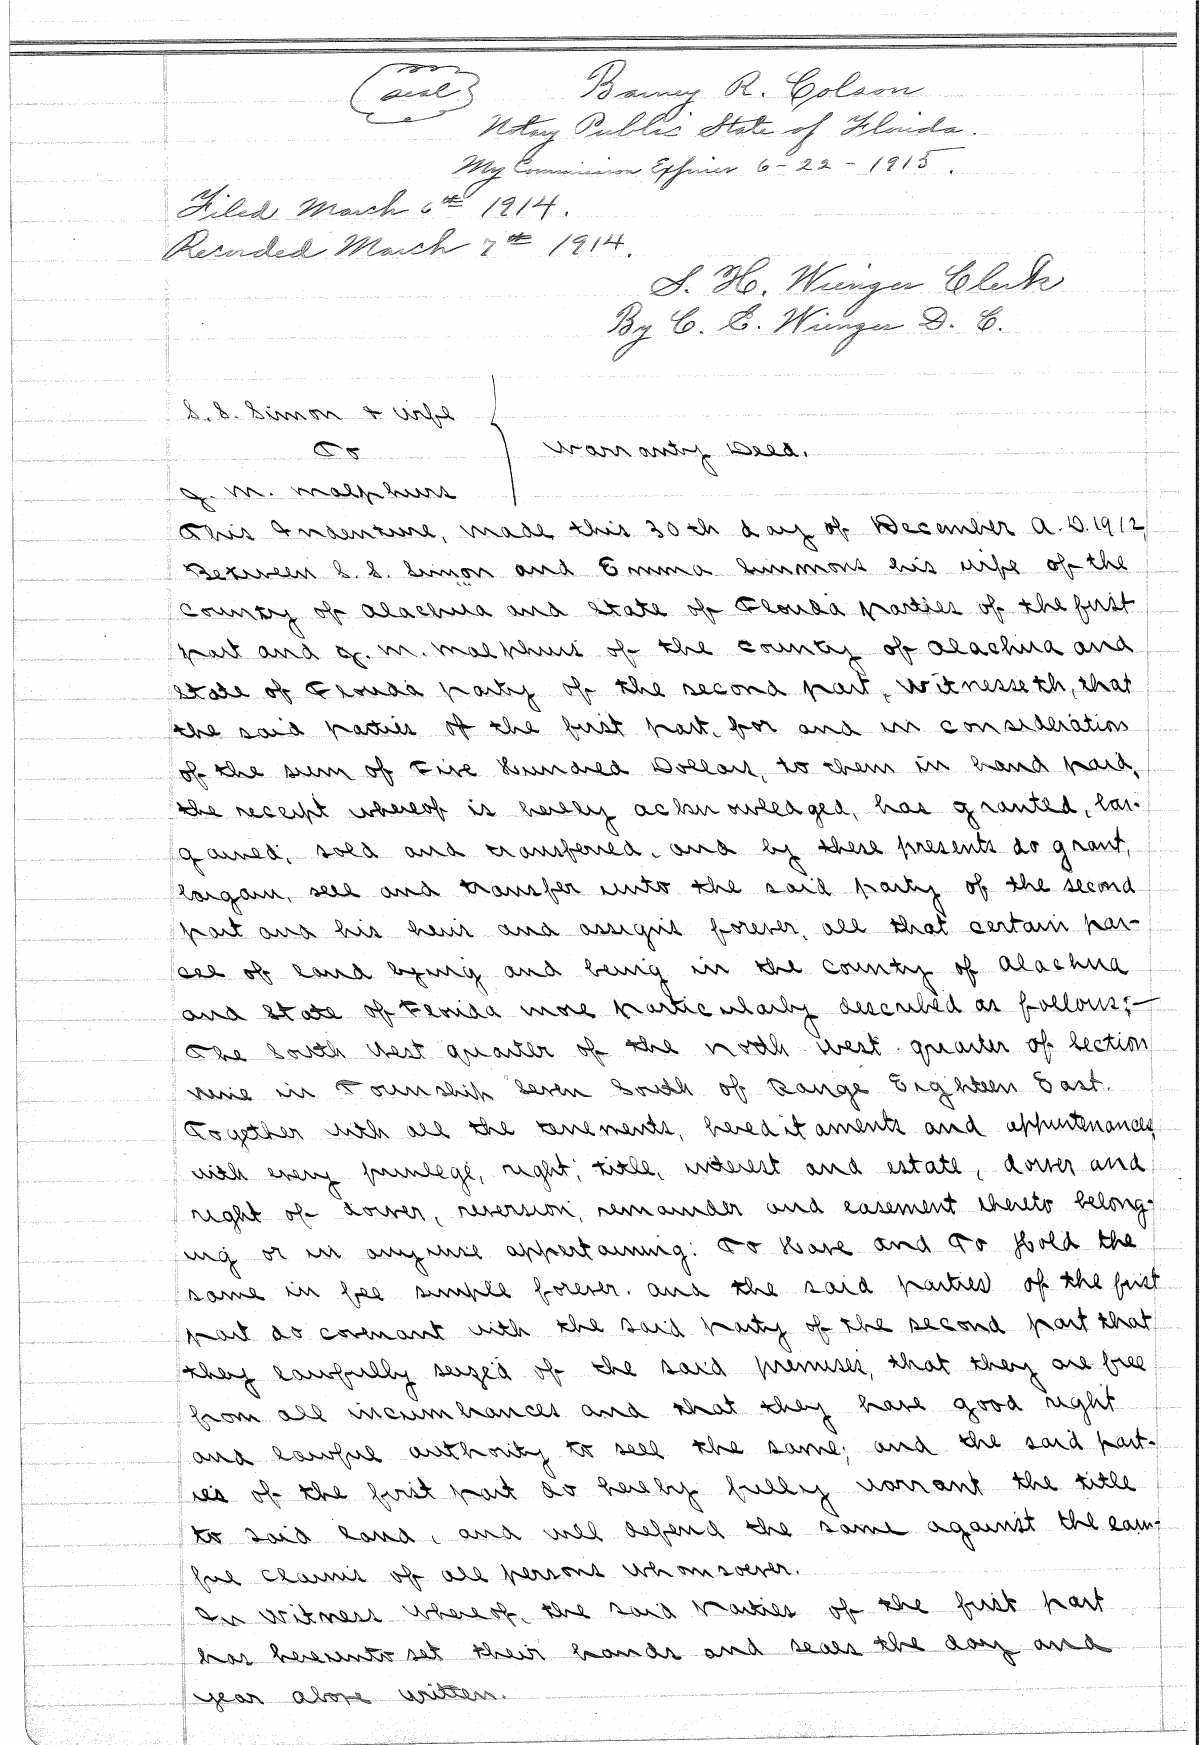 (seal) Barney R. Colson
Notary Public State of Florida.
My Commission Expires 6-22-1915.
Filed March 6th 1914.
Recorded March 7th 1914.
S. H. Wienges Clerk
By C. E. Wienges D. C.
S. S. Simon & wife
To
Warranty Deed.
G. M. Malphurs
This Indenture, made this 30th day of December A.D. 1912
Between S. S. Simon and Emma Simmons his wife of the
County of Alachua and State of Florida parties of the first
part and G. M. Malphurs of the County of Alachua and
State of Florida party of the second part, Witnesseth, that
the said parties of the first part, for and in consideration
of the sum of Five Hundred Dollars, to them in hand paid,
the receipt whereof is hereby acknowledged, has granted, bar-
gained, sold and transferred, and by these presents do grant,
bargain, sell and transfer unto the said party of the second
part and his heirs and assigns forever, all that certain par-
cel of land lying and being in the County of Alachua
and State of Florida more particularly described as follows:—
The South West quarter of the North West quarter of Section
nine in Township Seven South of Range Eighteen East.
Together with all the tenements, hereditaments and appurtenances,
with every privilege, right, title, interest and estate, dower and
right of dower, reversion, remainder and easement thereto belong-
ing or in anywise appertaining: To Have and To Hold the
same in fee simple forever. and the said parties of the first
part do covenant with the said party of the second part that
they lawfully seized of the said premises, that they are free
from all incumbrances and that they have good right
and lawful authority to sell the same; and the said part-
ies of the first part do hereby fully warrant the title
to said land, and will defend the same against the law-
ful claims of all persons whomsoever.
In Witness Whereof, the said parties of the first part
has hereunto set their hands and seals the day and
year above written.